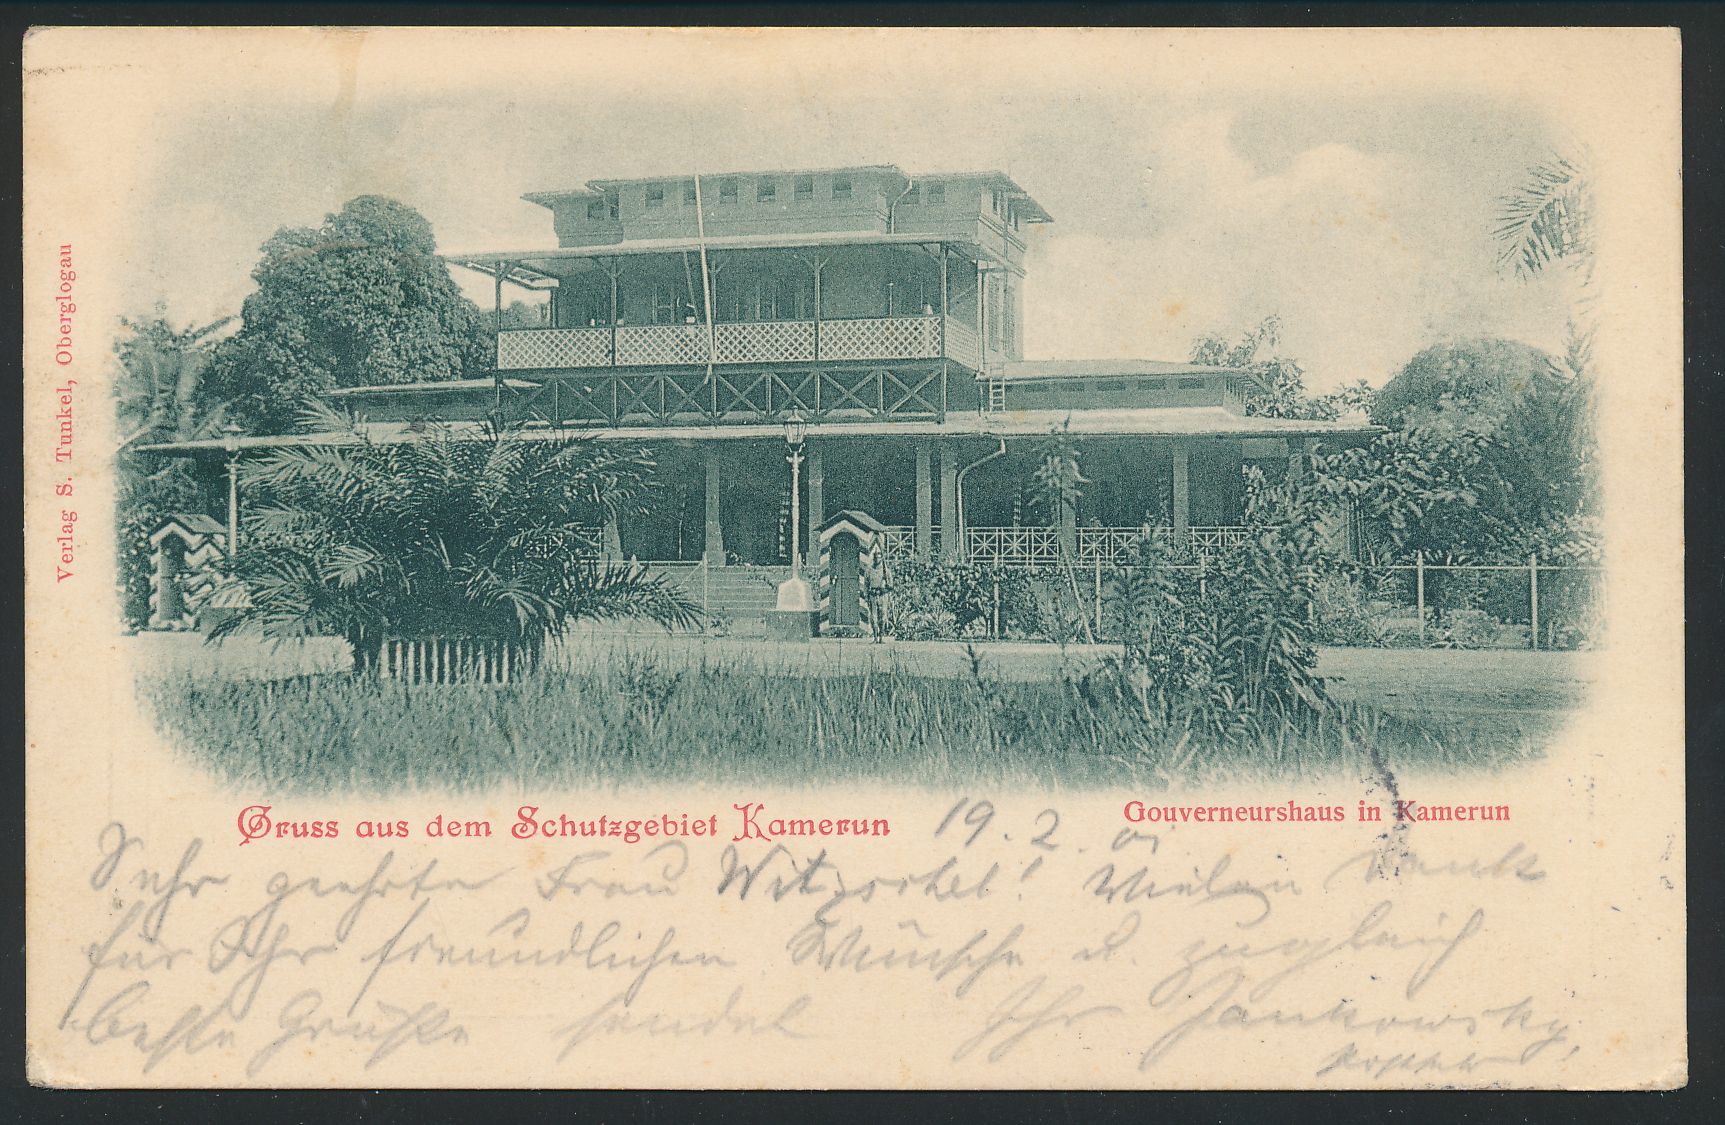 Verlag S. Tunkel, Oberglogau
Gruss aus dem Schutzgebiet Kamerun
Gouverneurshaus in Kamerun
19. 2. 01
Sehr geehrte Frau! Vielen Dank
für Ihr freundlichen Wünsche u. zugleich
beste Grüße sendet Ihr Jankowsky,